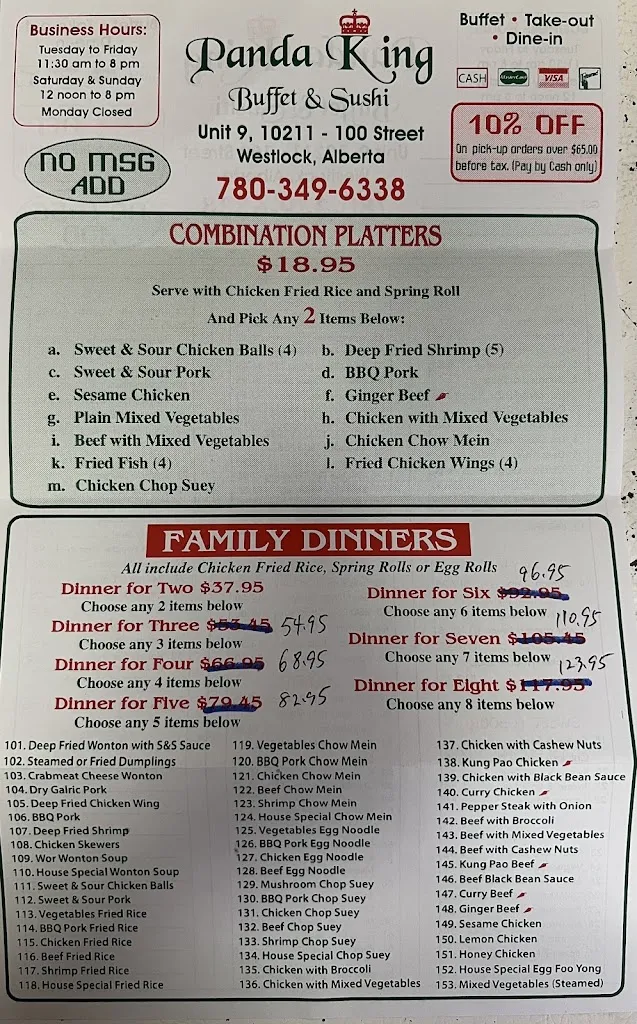 Business Hours:
Tuesday to Friday
11:30 am to 8 pm
Saturday & Sunday
12 noon to 8 pm
Monday Closed
NO MSG
ADD
Panda King
Buffet & Sushi
Unit 9, 10211 - 100 Street
Westlock, Alberta
780-349-6338
Buffet • Take-out
• Dine-in
CASH
MasterCard
VISA
10% OFF
On pick-up orders over $65.00
before tax. (Pay by Cash only)
COMBINATION PLATTERS
$18.95
Serve with Chicken Fried Rice and Spring Roll
And Pick Any 2 Items Below:
a. Sweet & Sour Chicken Balls (4)
b. Deep Fried Shrimp (5)
c. Sweet & Sour Pork
d. BBQ Pork
e. Sesame Chicken
f. Ginger Beef
g. Plain Mixed Vegetables
h. Chicken with Mixed Vegetables
i. Beef with Mixed Vegetables
j. Chicken Chow Mein
k. Fried Fish (4)
l. Fried Chicken Wings (4)
m. Chicken Chop Suey
FAMILY DINNERS
All include Chicken Fried Rice, Spring Rolls or Egg Rolls
Dinner for Two $37.95
Choose any 2 items below
Dinner for Three $53.45 54.95
Choose any 3 items below
Dinner for Four $66.95 68.95
Choose any 4 items below
Dinner for Five $79.45 82.95
Choose any 5 items below
96.95
Dinner for Six $92.95
Choose any 6 items below
110.95
Dinner for Seven $105.45
Choose any 7 items below
123.95
Dinner for Eight $117.95
Choose any 8 items below
101. Deep Fried Wonton with S&S Sauce
102. Steamed or Fried Dumplings
103. Crabmeat Cheese Wonton
104. Dry Galric Pork
105. Deep Fried Chicken Wing
106. BBQ Pork
107. Deep Fried Shrimp
108. Chicken Skewers
109. Wor Wonton Soup
110. House Special Wonton Soup
111. Sweet & Sour Chicken Balls
112. Sweet & Sour Pork
113. Vegetables Fried Rice
114. BBQ Pork Fried Rice
115. Chicken Fried Rice
116. Beef Fried Rice
117. Shrimp Fried Rice
118. House Special Fried Rice
119. Vegetables Chow Mein
120. BBQ Pork Chow Mein
121. Chicken Chow Mein
122. Beef Chow Mein
123. Shrimp Chow Mein
124. House Special Chow Mein
125. Vegetables Egg Noodle
126. BBQ Pork Egg Noodle
127. Chicken Egg Noodle
128. Beef Egg Noodle
129. Mushroom Chop Suey
130. BBQ Pork Chop Suey
131. Chicken Chop Suey
132. Beef Chop Suey
133. Shrimp Chop Suey
134. House Special Chop Suey
135. Chicken with Broccoli
136. Chicken with Mixed Vegetables
137. Chicken with Cashew Nuts
138. Kung Pao Chicken
139. Chicken with Black Bean Sauce
140. Curry Chicken
141. Pepper Steak with Onion
142. Beef with Broccoli
143. Beef with Mixed Vegetables
144. Beef with Cashew Nuts
145. Kung Pao Beef
146. Beef Black Bean Sauce
147. Curry Beef
148. Ginger Beef
149. Sesame Chicken
150. Lemon Chicken
151. Honey Chicken
152. House Special Egg Foo Yong
153. Mixed Vegetables (Steamed)